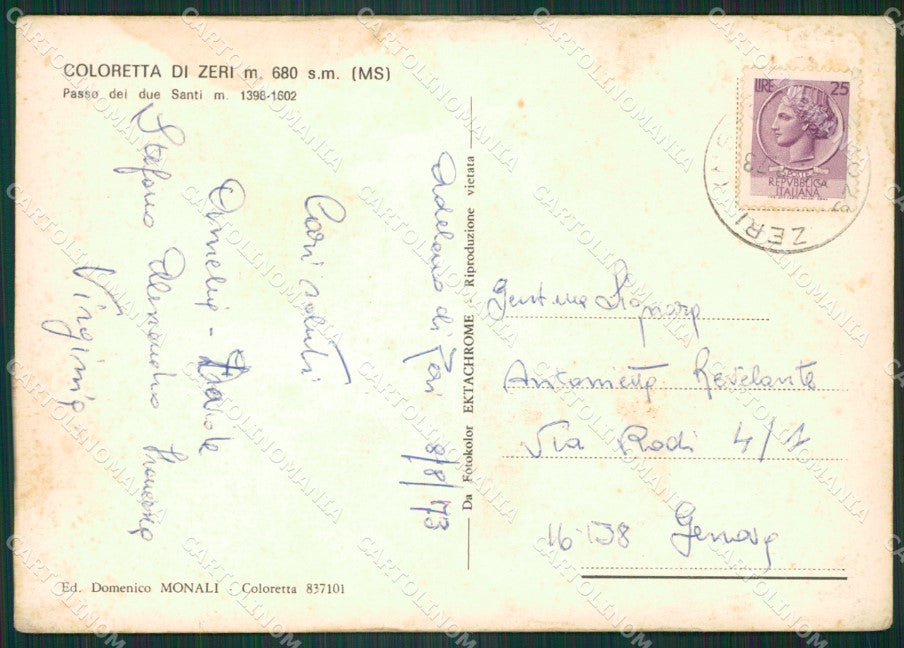 COLORETTA DI ZERI m. 680 s.m. (MS)
Passo dei due Santi m. 1398-1602
di Zeri 8/8/73
Cari saluti
Ornella -
Stefano Alessandro
Virginia
Da Fotokolor EKTACHROME - Riproduzione vietata
LIRE 25
REPVBBLICA
ITALIANA
ZERI
Gent.ma Signora
Antonietta Revelante
Via Rodi 4/1
16138 Genova
Ed. Domenico MONALI - Coloretta 837101
CARTOLINOMANIA